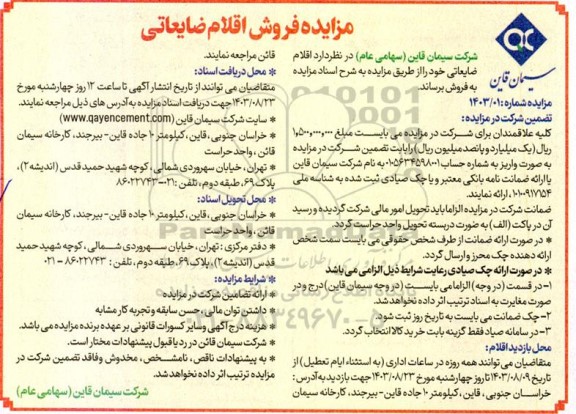 مزایده فروش اقلام ضایعاتی
سیمان قاین
شرکت سیمان قاین (سهامی عام) در نظر دارد اقلام
ضایعاتی خود را از طریق مزایده به شرح اسناد مزایده
به فروش برساند.
مزایده شماره: ۱۴۰۳/۰۱
تضمین شرکت در مزایده:
کلیه علاقمندان برای شرکت در مزایده می بایست مبلغ ۱٫۵۰۰٫۰۰۰٫۰۰۰
ریال (یک میلیارد و پانصد میلیون ریال) را بابت تضمین شرکت در مزایده
به صورت واریز به شماره حساب ۰۱۰۵۶۳۴۵۹۸۰۰ به نام شرکت سیمان قاین
یا ارائه ضمانت نامه بانکی معتبر و یا چک صیادی ثبت شده به شناسه ملی
۱۰۱۰۰۹۱۷۱۵۴، ارائه نمایند.
ضمانت شرکت در مزایده الزاما باید تحویل امور مالی شرکت گردیده و رسید
آن در پاکت (الف) به صورت دربسته تحویل واحد حراست گردد.
* در صورت ارائه ضمانت از طرف شخص حقوقی می بایست سمت شخص
ارائه دهنده چک محرز و ارسال گردد.
* در صورت ارائه چک صیادی رعایت شرایط ذیل الزامی می باشد
۱- در قسمت (در وجه) الزاما می بایست (در وجه سیمان قاین) درج و در
صورت مغایرت به اسناد ترتیب اثر داده نخواهد شد.
۲- چک ضمانت می بایست به تاریخ روز ثبت شود.
۳- در سامانه صیاد فقط گزینه بابت خرید کالا انتخاب گردد.
محل بازدید اقلام:
متقاضیان می توانند همه روزه در ساعات اداری (به استثناء ایام تعطیل) از
تاریخ ۱۴۰۳/۰۸/۰۹ تا روز چهارشنبه مورخ ۱۴۰۳/۰۸/۲۳ جهت بازدید به آدرس:
خراسان جنوبی، قاین، کیلومتر ۱۰ جاده قاین- بیرجند، کارخانه سیمان
قائن مراجعه نمایند.
* محل دریافت اسناد:
متقاضیان می توانند از تاریخ انتشار آگهی تا ساعت ۱۲ روز چهارشنبه مورخ
۱۴۰۳/۰۸/۲۳ جهت دریافت اسناد مزایده به آدرس های ذیل مراجعه نمایند.
* سایت شرکت سیمان قاین (www.qayencement.com)
* خراسان جنوبی، قاین، کیلومتر ۱۰ جاده قاین- بیرجند، کارخانه سیمان
قائن، واحد حراست
* تهران، خیابان سهروردی شمالی، کوچه شهید حمید قدس (اندیشه ۲)،
پلاک ۶۹، طبقه دوم، تلفن: ۰۲۱-۸۶۰۲۲۷۴۳
* محل تحویل اسناد:
* خراسان جنوبی، قاین، کیلومتر ۱۰ جاده قاین- بیرجند، کارخانه سیمان
قائن، واحد حراست
* دفتر مرکزی: تهران، خیابان سهروردی شمالی، کوچه شهید حمید
قدس (اندیشه ۲)، پلاک ۶۹، طبقه دوم، تلفن: ۸۶۰۲۲۷۴۳ - ۰۲۱
* شرایط مزایده:
* ارائه تضمین شرکت در مزایده
* داشتن توان مالی، حسن سابقه و تجربه کار مشابه
* هزینه درج آگهی و سایر کسورات قانونی بر عهده برنده مزایده می باشد.
* شرکت سیمان قائن در رد یا قبول پیشنهادات مختار است.
* به پیشنهادات ناقص، نامشخص، مخدوش و فاقد تضمین شرکت در
مزایده ترتیب اثر داده نخواهد شد.
شرکت سیمان قاین (سهامی عام)